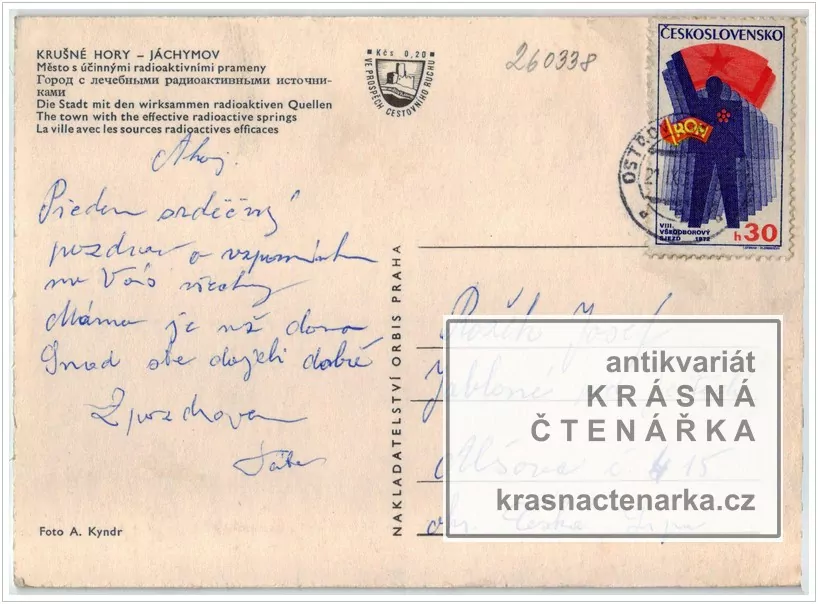 KRUŠNÉ HORY – JÁCHYMOV
Město s účinnými radioaktivními prameny
Город с лечебными радиоактивными источни-
ками
Die Stadt mit den wirksammen radioaktiven Quellen
The town with the effective radioactive springs
La ville avec les sources radioactives efficaces
Kčs 0,20
VE PROSPĚCH CESTOVNÍHO RUCHU
260338
ČESKOSLOVENSKO
ROH
VIII.
VŠEODBOROVÝ
SJEZD 1972
h 30
OSTROV
Ahoj.
srdečný
pozdrav a
na Vás všechny
Máma je už doma
Snad ste dojeli dobře
Zpozdravem
NAKLADATELSTVÍ ORBIS PRAHA
Josef
Jablonné
č 15
Česká Lípa
antikvariát
KRÁSNÁ
ČTENÁŘKA
krasnactenarka.cz
Foto A. Kyndr